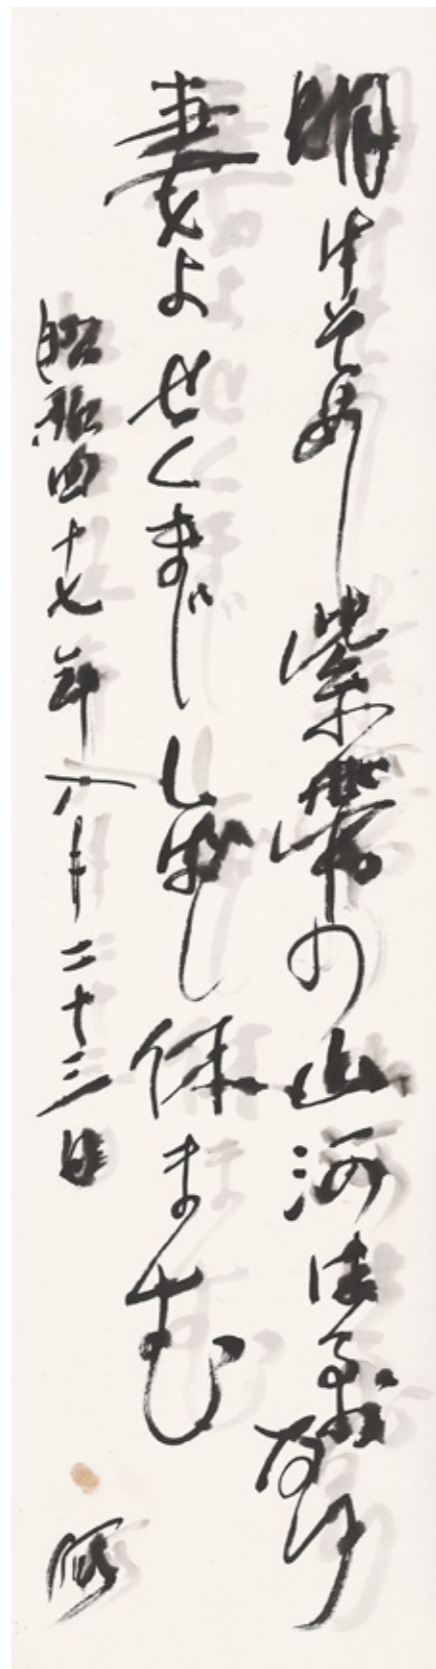 明けそめし紫帯の山河
妻よせくまじしばし休まむ
昭和四十七年八月二十三日